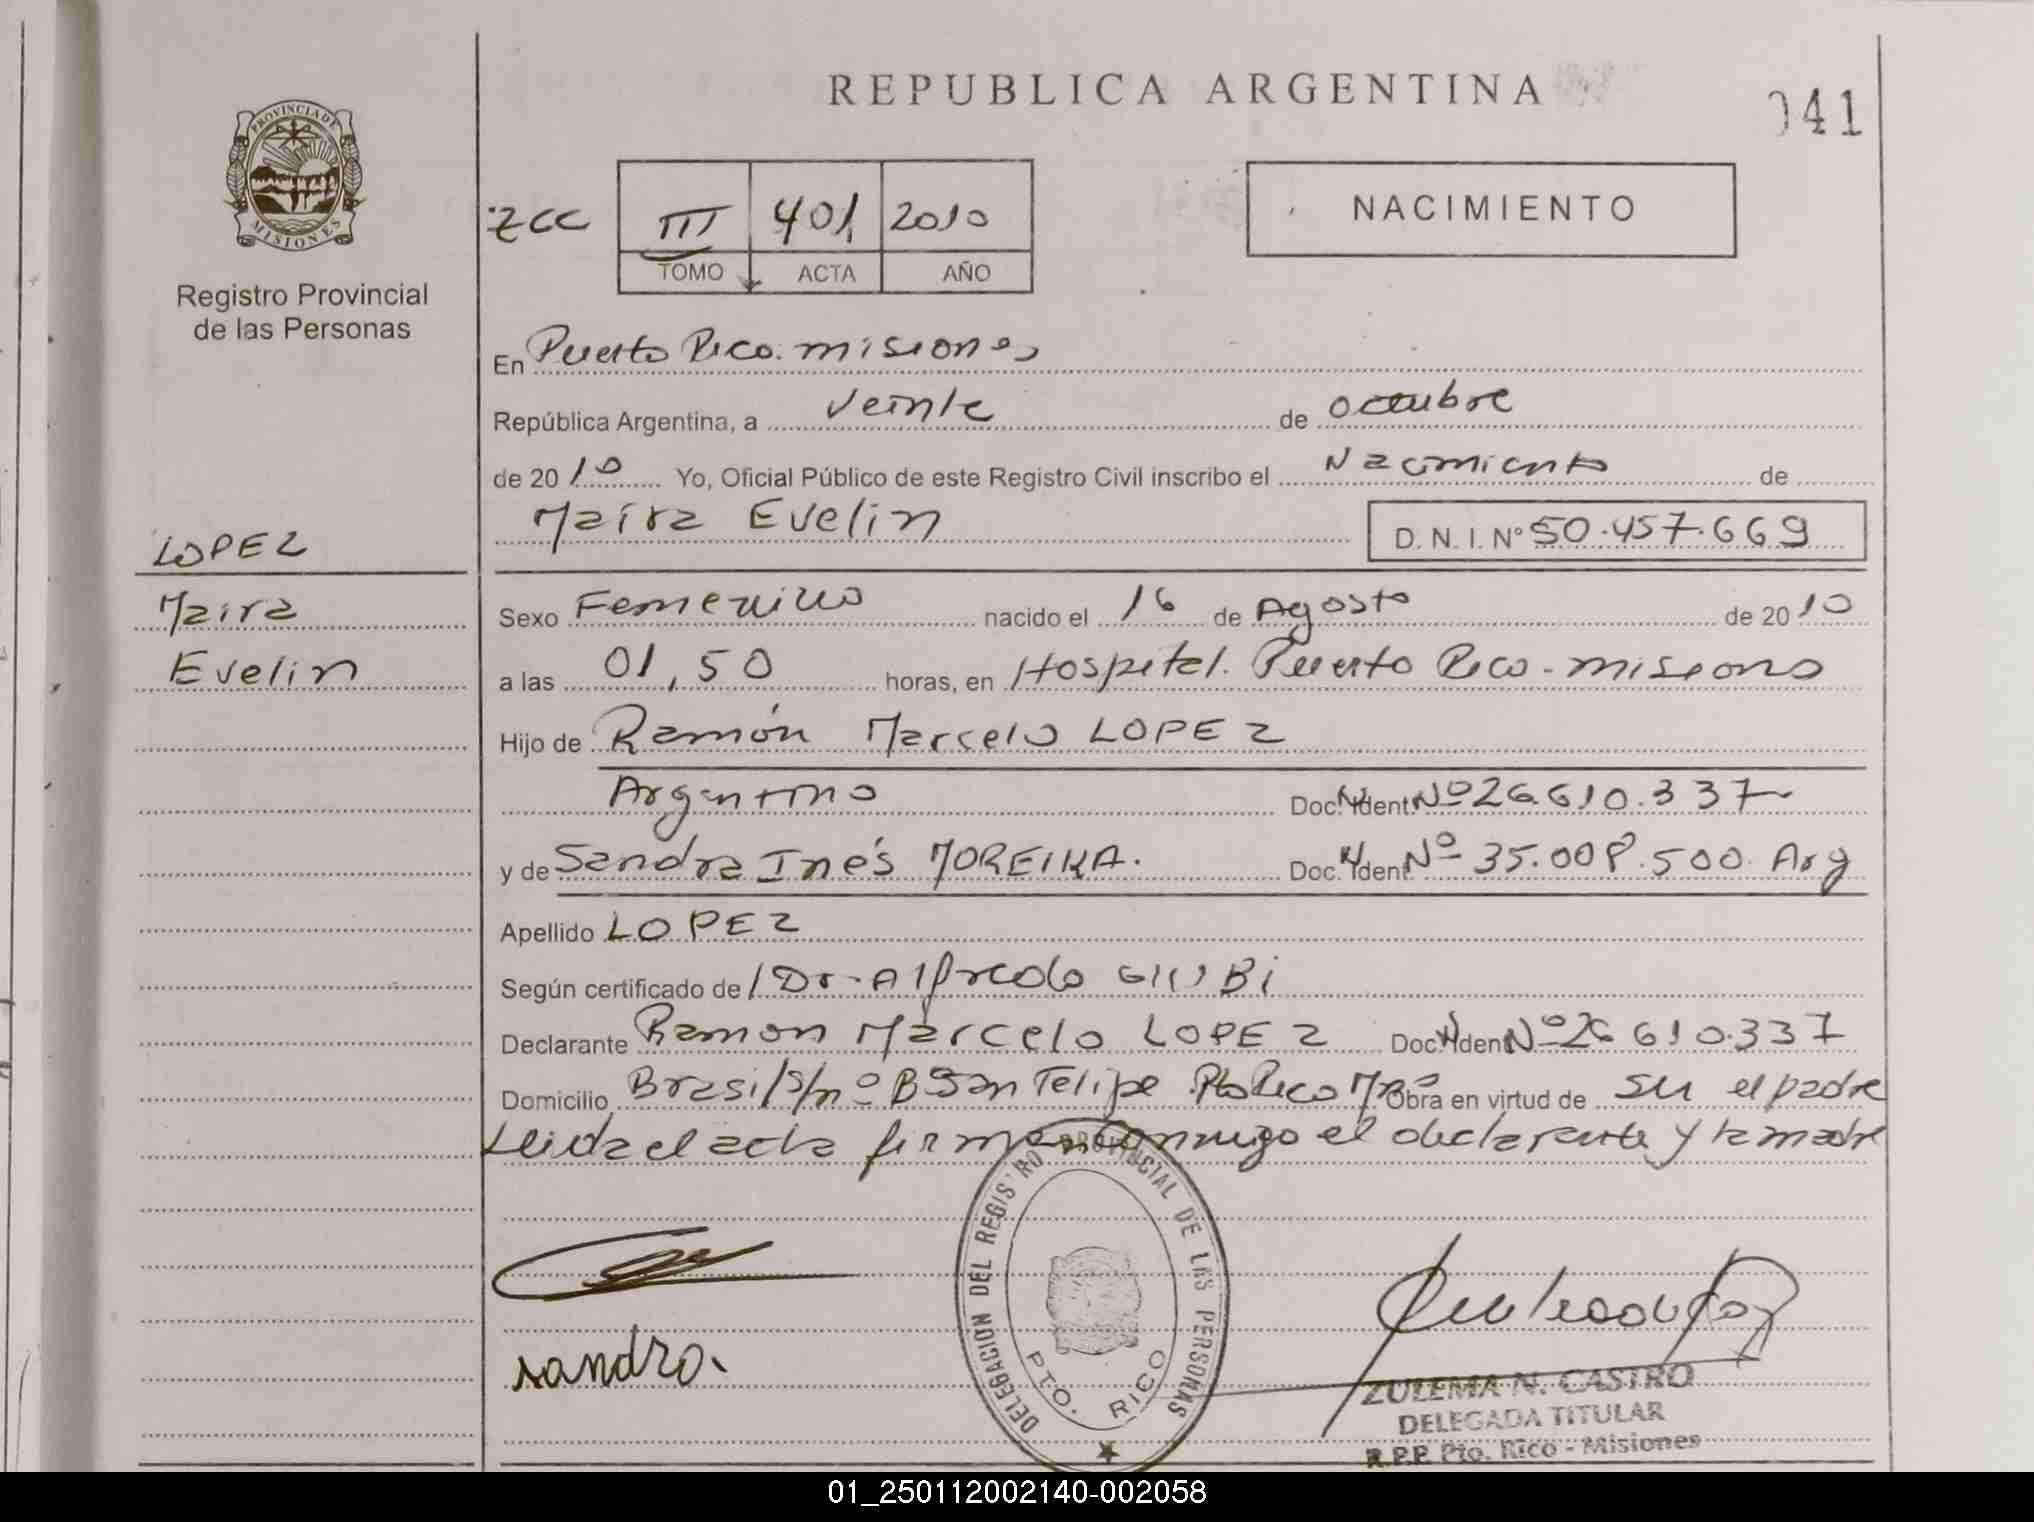 REPUBLICA ARGENTINA
041
PROVINCIA DE
MISIONES
Registro Provincial
de las Personas
zcc III 401 2010
TOMO ACTA AÑO
NACIMIENTO
En Puerto Rico. misiones
República Argentina, a veinte de octubre
de 2010 Yo, Oficial Público de este Registro Civil inscribo el Nacimiento de
Maira Evelin
D. N. I. N° 50.457.669
LOPEZ
Maira
Evelin
Sexo Femenino nacido el 16 de Agosto de 2010
a las 01,50 horas, en Hospital. Puerto Rico - misiones
Hijo de Ramón Marcelo LOPEZ
Argentino Doc. Ident. Nº 26.610.337
y de Sandra Inés MOREIRA. Doc. Ident. Nº 35.008.500 Arg
Apellido LOPEZ
Según certificado de Dr. Alfredo
Declarante Ramon Marcelo LOPEZ Doc. Ident. Nº 26 610.337
Domicilio Brasil s/nº Bº San Felipe Pto Rico Mnes Obra en virtud de su el padre
Leida el acta firman conmigo el declarante y la madre
DELEGACION DEL REGISTRO PROVINCIAL DE LAS PERSONAS
PTO. RICO
sandra.
ZULEMA N. CASTRO
DELEGADA TITULAR
R.P.P. Pto. Rico - Misiones
01_250112002140-002058